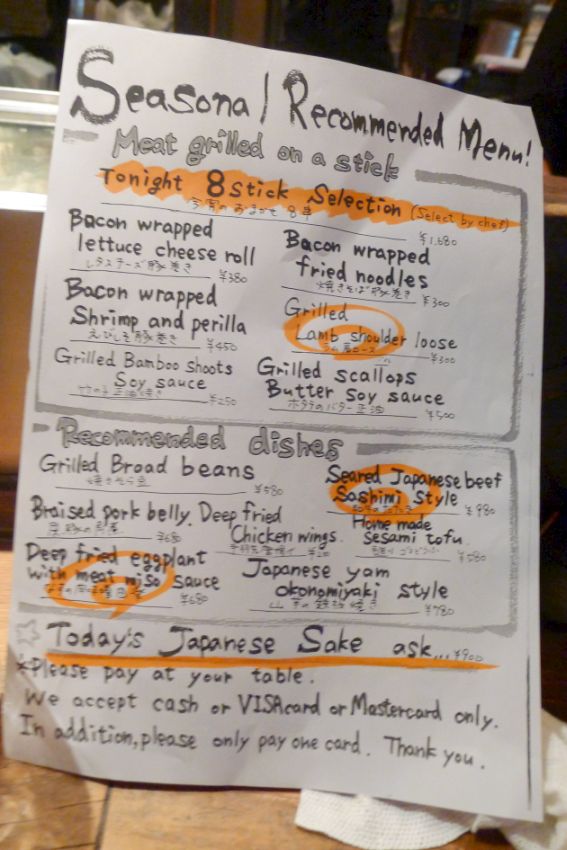 Seasonal Recommended Menu!
Meat grilled on a stick
Tonight 8 Stick Selection (Select by chef)
今宵のおまかせ8串 ¥1,680
Bacon wrapped
lettuce cheese roll
レタスチーズ豚巻き ¥380
Bacon wrapped
fried noodles
焼きそば豚巻き ¥300
Bacon wrapped
Shrimp and perilla
えびしそ豚巻き ¥450
Grilled
Lamb shoulder loose
¥300
Grilled Bamboo shoots
Soy sauce
¥250
Grilled scallops
Butter Soy sauce
ホタテのバター正油 ¥500
Recommended dishes
Grilled Broad beans
焼きそら豆 ¥580
Seared Japanese beef
Sashimi Style
¥980
Braised pork belly.
¥680
Deep fried
Chicken wings.
Home made
Sesami tofu.
¥580
Deep fried eggplant
with meat miso sauce
¥680
Japanese yam
okonomiyaki style
山芋の鉄板焼き ¥780
Today's Japanese Sake ask... ¥900
*Please pay at your table.
We accept cash or VISAcard or Mastercard only.
In addition, please only pay one card. Thank you.